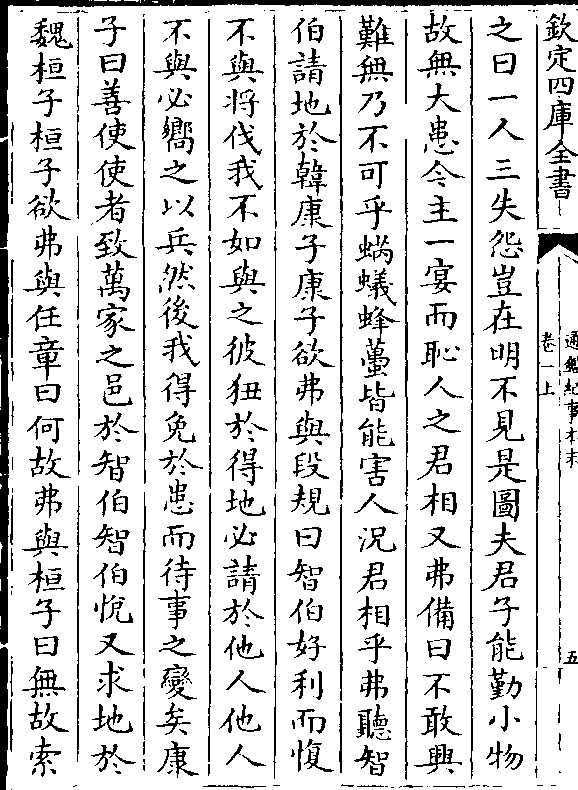 欽定四庫全書
通鑑紀事本末
卷一上
五
之曰一人三失怨豈在明不見是圖夫君子能勤小物
故無大患今主一宴而恥人之君相又弗備曰不敢興
難無乃不可乎蜹蟻蜂蠆皆能害人況君相乎弗聽智
伯請地於韓康子康子欲弗與段規曰智伯好利而愎
不與將伐我不如與之彼狃於得地必請於他人他人
不與必嚮之以兵然後我得免於患而待事之變矣康
子曰善使使者致萬家之邑於智伯智伯悅又求地於
魏桓子桓子欲弗與任章曰何故弗與桓子曰無故索